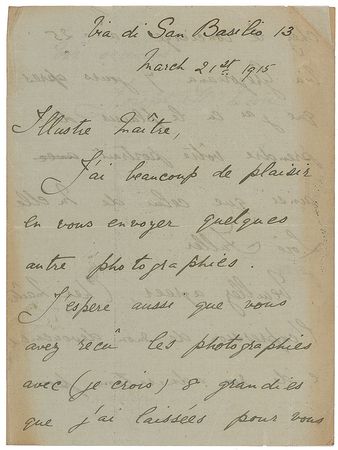 Via di San Basilio 13
March 21st 1915
Illustre Maître,
J'ai beaucoup de plaisir
en vous envoyer quelques
autre photographies.
J'espere aussie que vous
avez reçû les photographies
avec (je crois) 8 grandies
que j'ai laissées pour vous